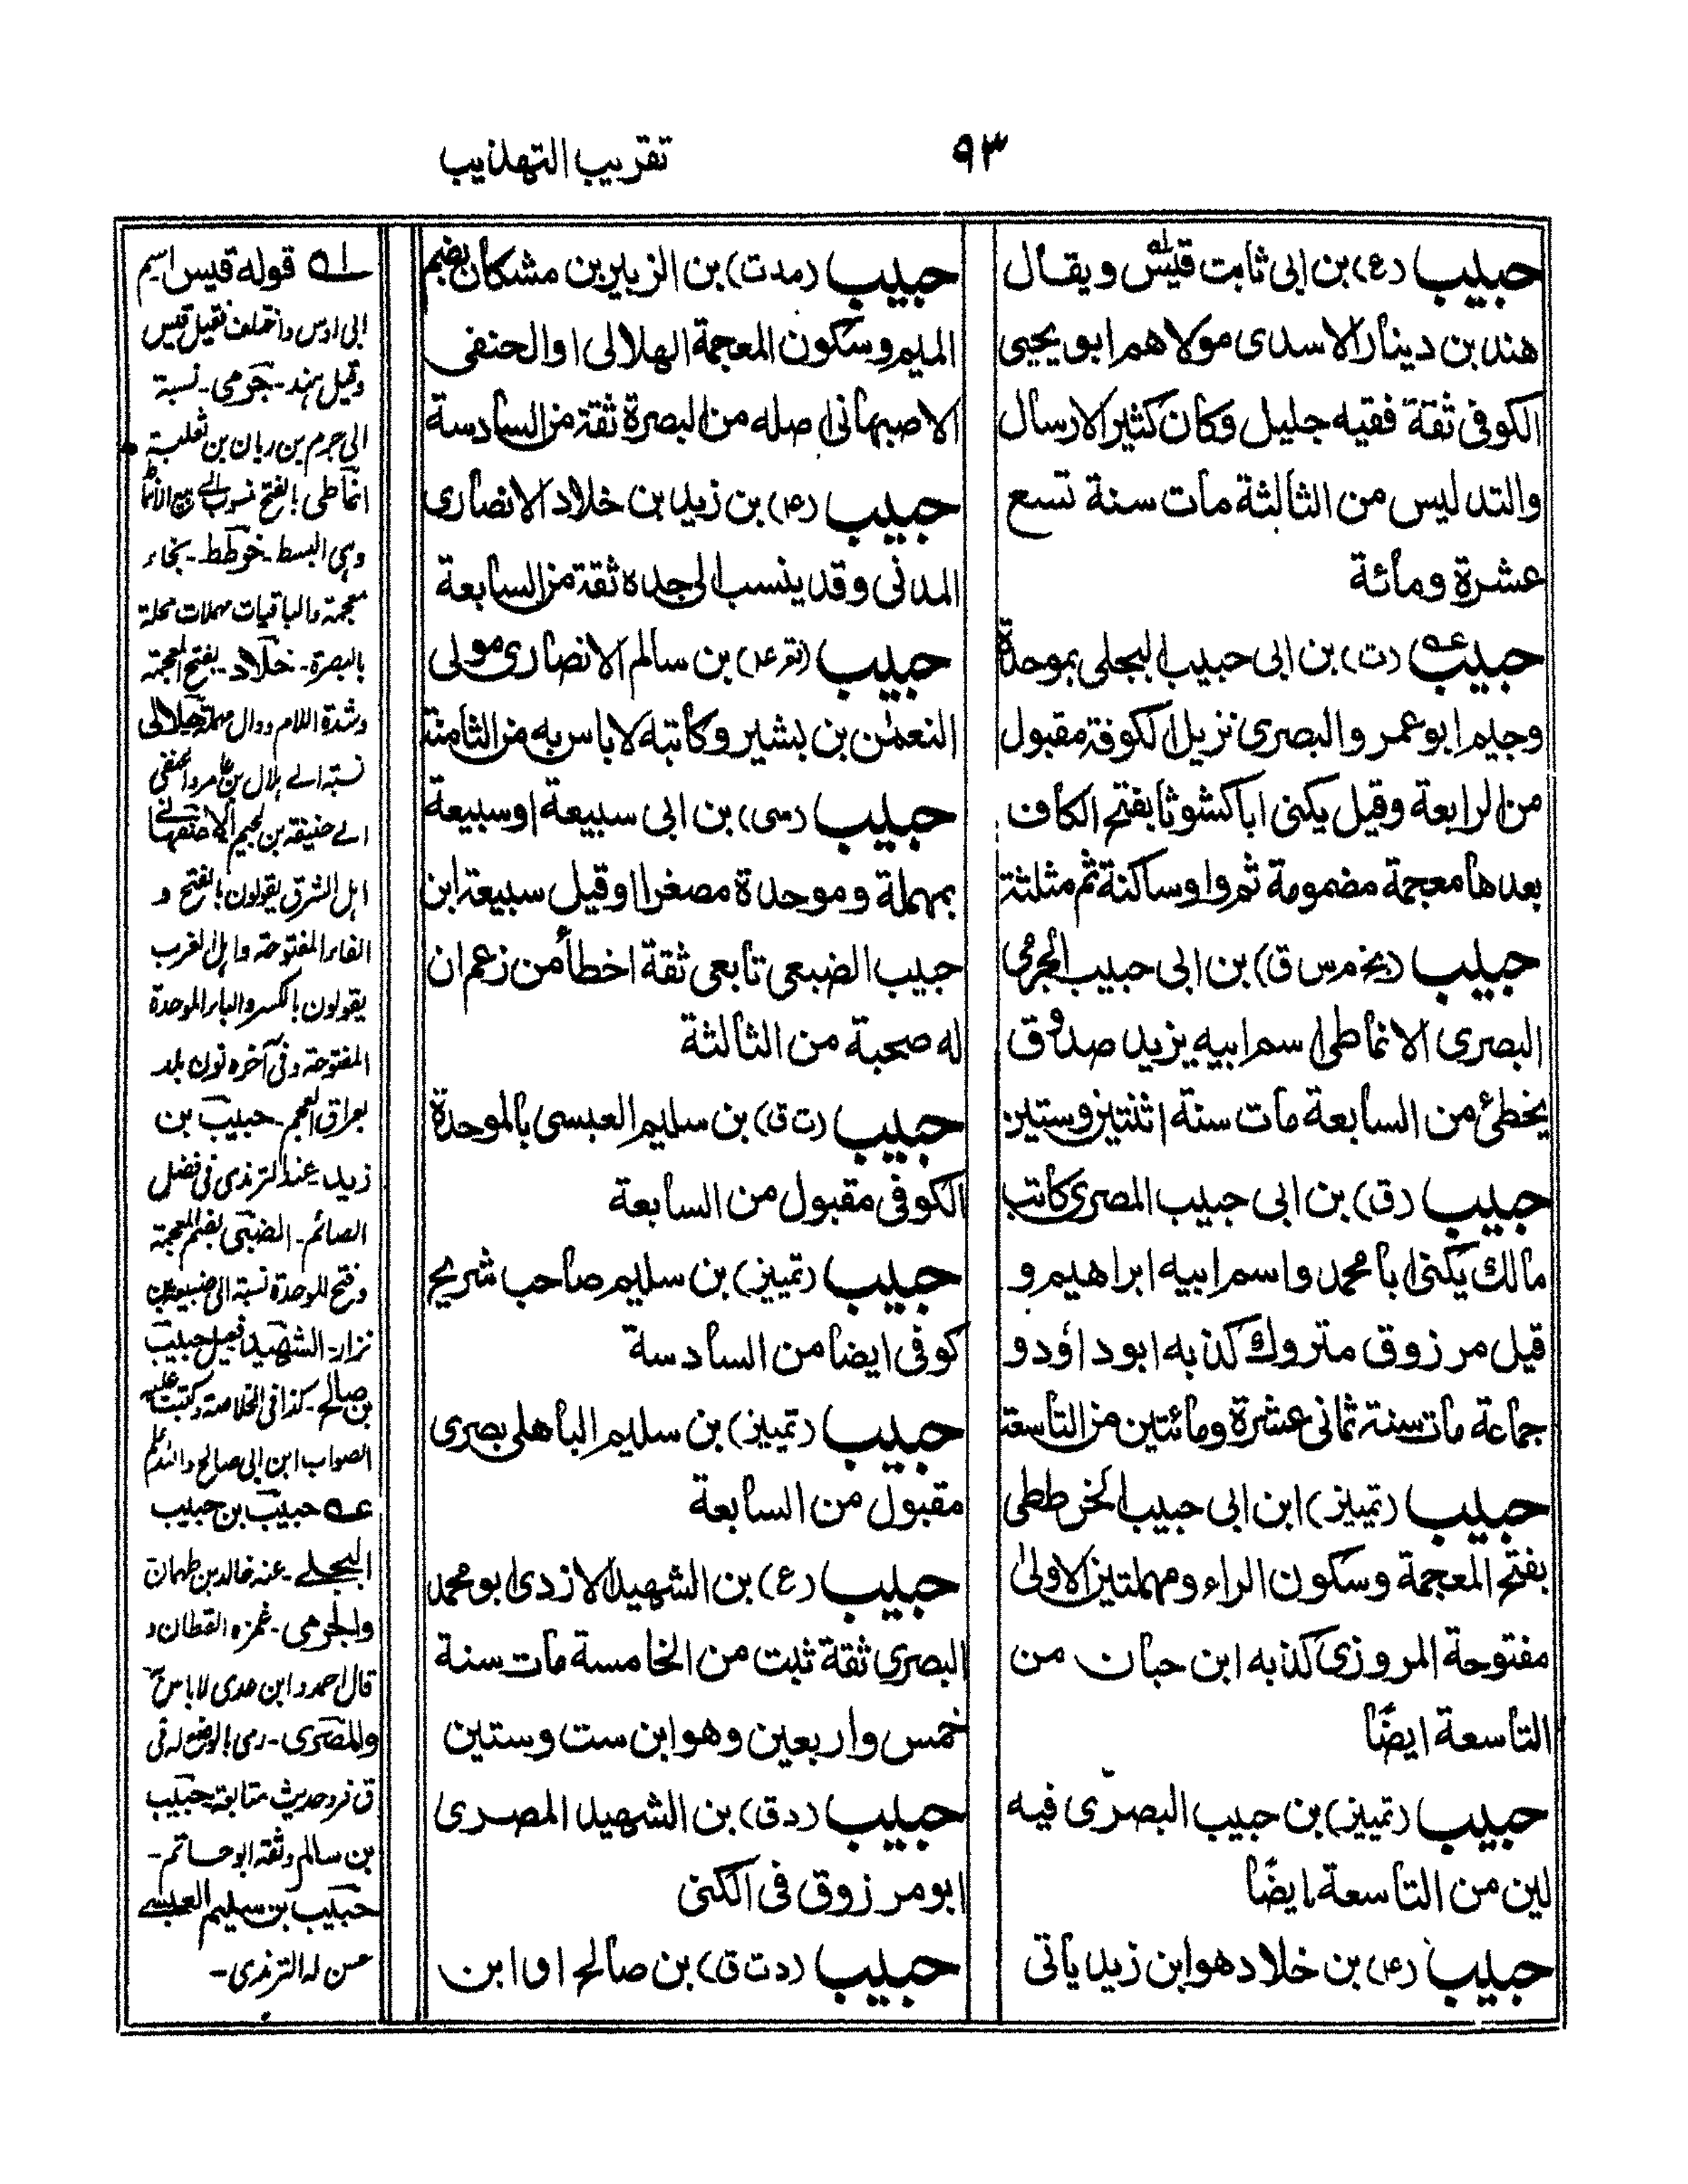 ٩٣
تقريب التهذيب
حبيب (ع) بن ابى ثابت قيس ويقال
هند بن دينار الاسدى مولاهم ابو يحيى
الكوفى ثقة فقيه جليل وكان كثير الارسال
والتدليس من الثالثة مات سنة تسع
عشرة ومائة
حبيب (ت) بن ابى حبيب البجلى بموحدة
وجيم ابو عمر و البصرى نزيل الكوفة مقبول
من الرابعة وقيل يكنى ابا كشوثا بفتح الكاف
بعدها معجمة مضمومة ثم واو ساكنة ثم مثلثة
حبيب (بخ م س ق) بن ابى حبيب الجرمى
البصرى الانماطى اسم ابيه يزيد صدوق
يخطئ من السابعة مات سنة اثنتين وستين
حبيب (ق) بن ابى حبيب المصرى كاتب
مالك يكنى ابا محمد واسم ابيه ابراهيم و
قيل مرزوق متروك كذبه ابو داؤد و
جماعة مات سنة ثمانى عشرة ومائتين من التاسعة
حبيب (تمييز) ابن ابى حبيب الخرططى
بفتح المعجمة وسكون الراء ومهملتين الاولى
مفتوحة المروزى كذبه ابن حبان من
التاسعة ايضًا
حبيب (تمييز) بن حبيب البصرى فيه
لين من التاسعة ايضًا
حبيب (ع‍) بن خلاد هو ابن زيد ياتى
حبيب (مدت) بن الزبير بن مشكان بضم
الميم وسكون المعجمة الهلالى او الحنفى
الاصبهانى اصله من البصرة ثقة من السادسة
حبيب (ع‍) بن زيد بن خلاد الانصارى
المدنى وقد ينسب الى جده ثقة من السابعة
حبيب بن سالم الانصارى مولى
النعمٰن بن بشير وكاتبه لا باس به من الثامنة
حبيب (سى) بن ابى سبيعة او سبيعة
بمهملة وموحدة مصغرا وقيل سبيعة ابن
حبيب الضبعى تابعى ثقة اخطأ من زعم ان
له صحبة من الثالثة
حبيب (ت ق) بن سليم العبسى بالموحدة
الكوفى مقبول من السابعة
حبيب (تمييز) بن سليم صاحب شريح
كوفى ايضا من السادسة
حبيب (تمييز) بن سليم الباهلى بصرى
مقبول من السابعة
حبيب (ع) بن الشهيد الازدى ابو محمد
البصرى ثقة ثبت من الخامسة مات سنة
خمس واربعين وهو ابن ست وستين
حبيب (د ق) بن الشهيد المصرى
ابو مرزوق فى الكنى
حبيب (د ت ق) بن صالح او ابن
قوله قيس اسم
ابى اوس واختلف فقيل قيس
وقيل هند - جرمى - نسبة
الى جرم بن ربان بن ثعلبة
انماطى بالفتح منسوب الى بيع الانماط
وهى البسط - خرطط - بخاء
معجمة والباقيات مهملات محلة
بالبصرة - خلاد - بفتح المعجمة
وشدة اللام ودال مهملة هلالى
نسبة الے هلال بن عامر والحنفى
الے حنيفة بن لجيم الاصفهانى
اهل الشرق يقولون بالفتح و
الفاء المفتوحة واهل الغرب
يقولون بالكسر والباء الموحدة
المفتوحة وفى آخره نون بلد
بعراق العجم - حبيب بن
زيد عند الترمذى فى فضل
الصائم - الضبعى بضم المعجمة
وفتح الموحدة نسبة الى ضبيعة بن
نزار - الشهيد فعيل حبيب
بن صالح - كذا فى الخلاصة وكتبت عليه
الصواب ابن ابى صالح والله اعلم
حبيب بن حبيب
البجلے - عنه خالد بن طهمان
والجرمى - غمزه القطان و
قال احمد وابن عدى لا باس به
والمصرى - رمى بالوضع له فى
ق فرد حديث متابعة حبيب
بن سالم وثقه ابو حاتم -
حبيب بن سليم العبسے
حسن له الترمذى -